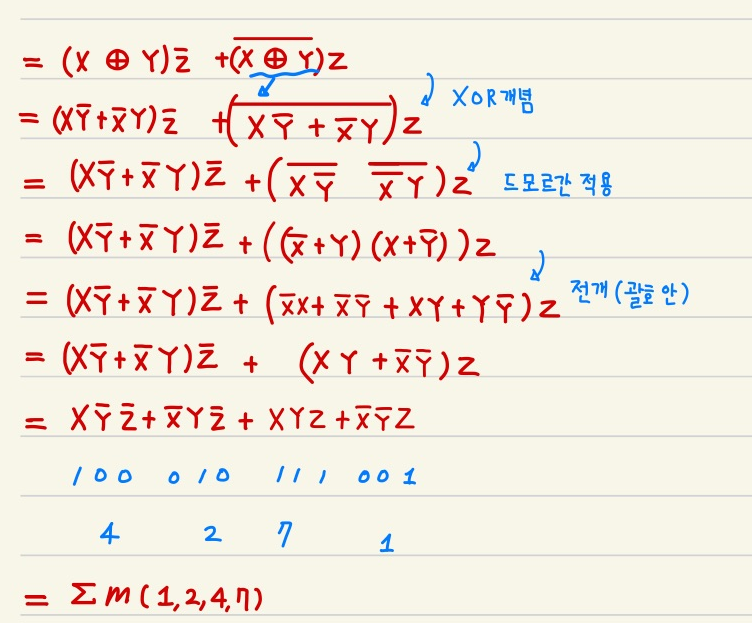 = (X ⊕ Y)z̅ + (X ⊕ Y)̅z
= (XY̅+X̅Y)z̅ + (X̅Y̅ ̅+̅ X̅̅Y̅)z XOR개념
= (XY̅+X̅Y)Z̅ + (X̅Y̅̅ X̅̅Y̅)z 드모르간 적용
= (XY̅+X̅Y)Z̅ + ((x̅+Y)(x+Y̅))z
= (XY̅+X̅Y)Z̅ + (x̅x+x̅Y̅+XY+YY̅)z 전개(괄호 안)
= (XY̅+X̅Y)Z̅ + (XY+x̅Y̅)z
= XY̅Z̅+X̅YZ̅+XYZ+X̅Y̅Z
100 010 111 001
4 2 7 1
= Σm(1,2,4,7)